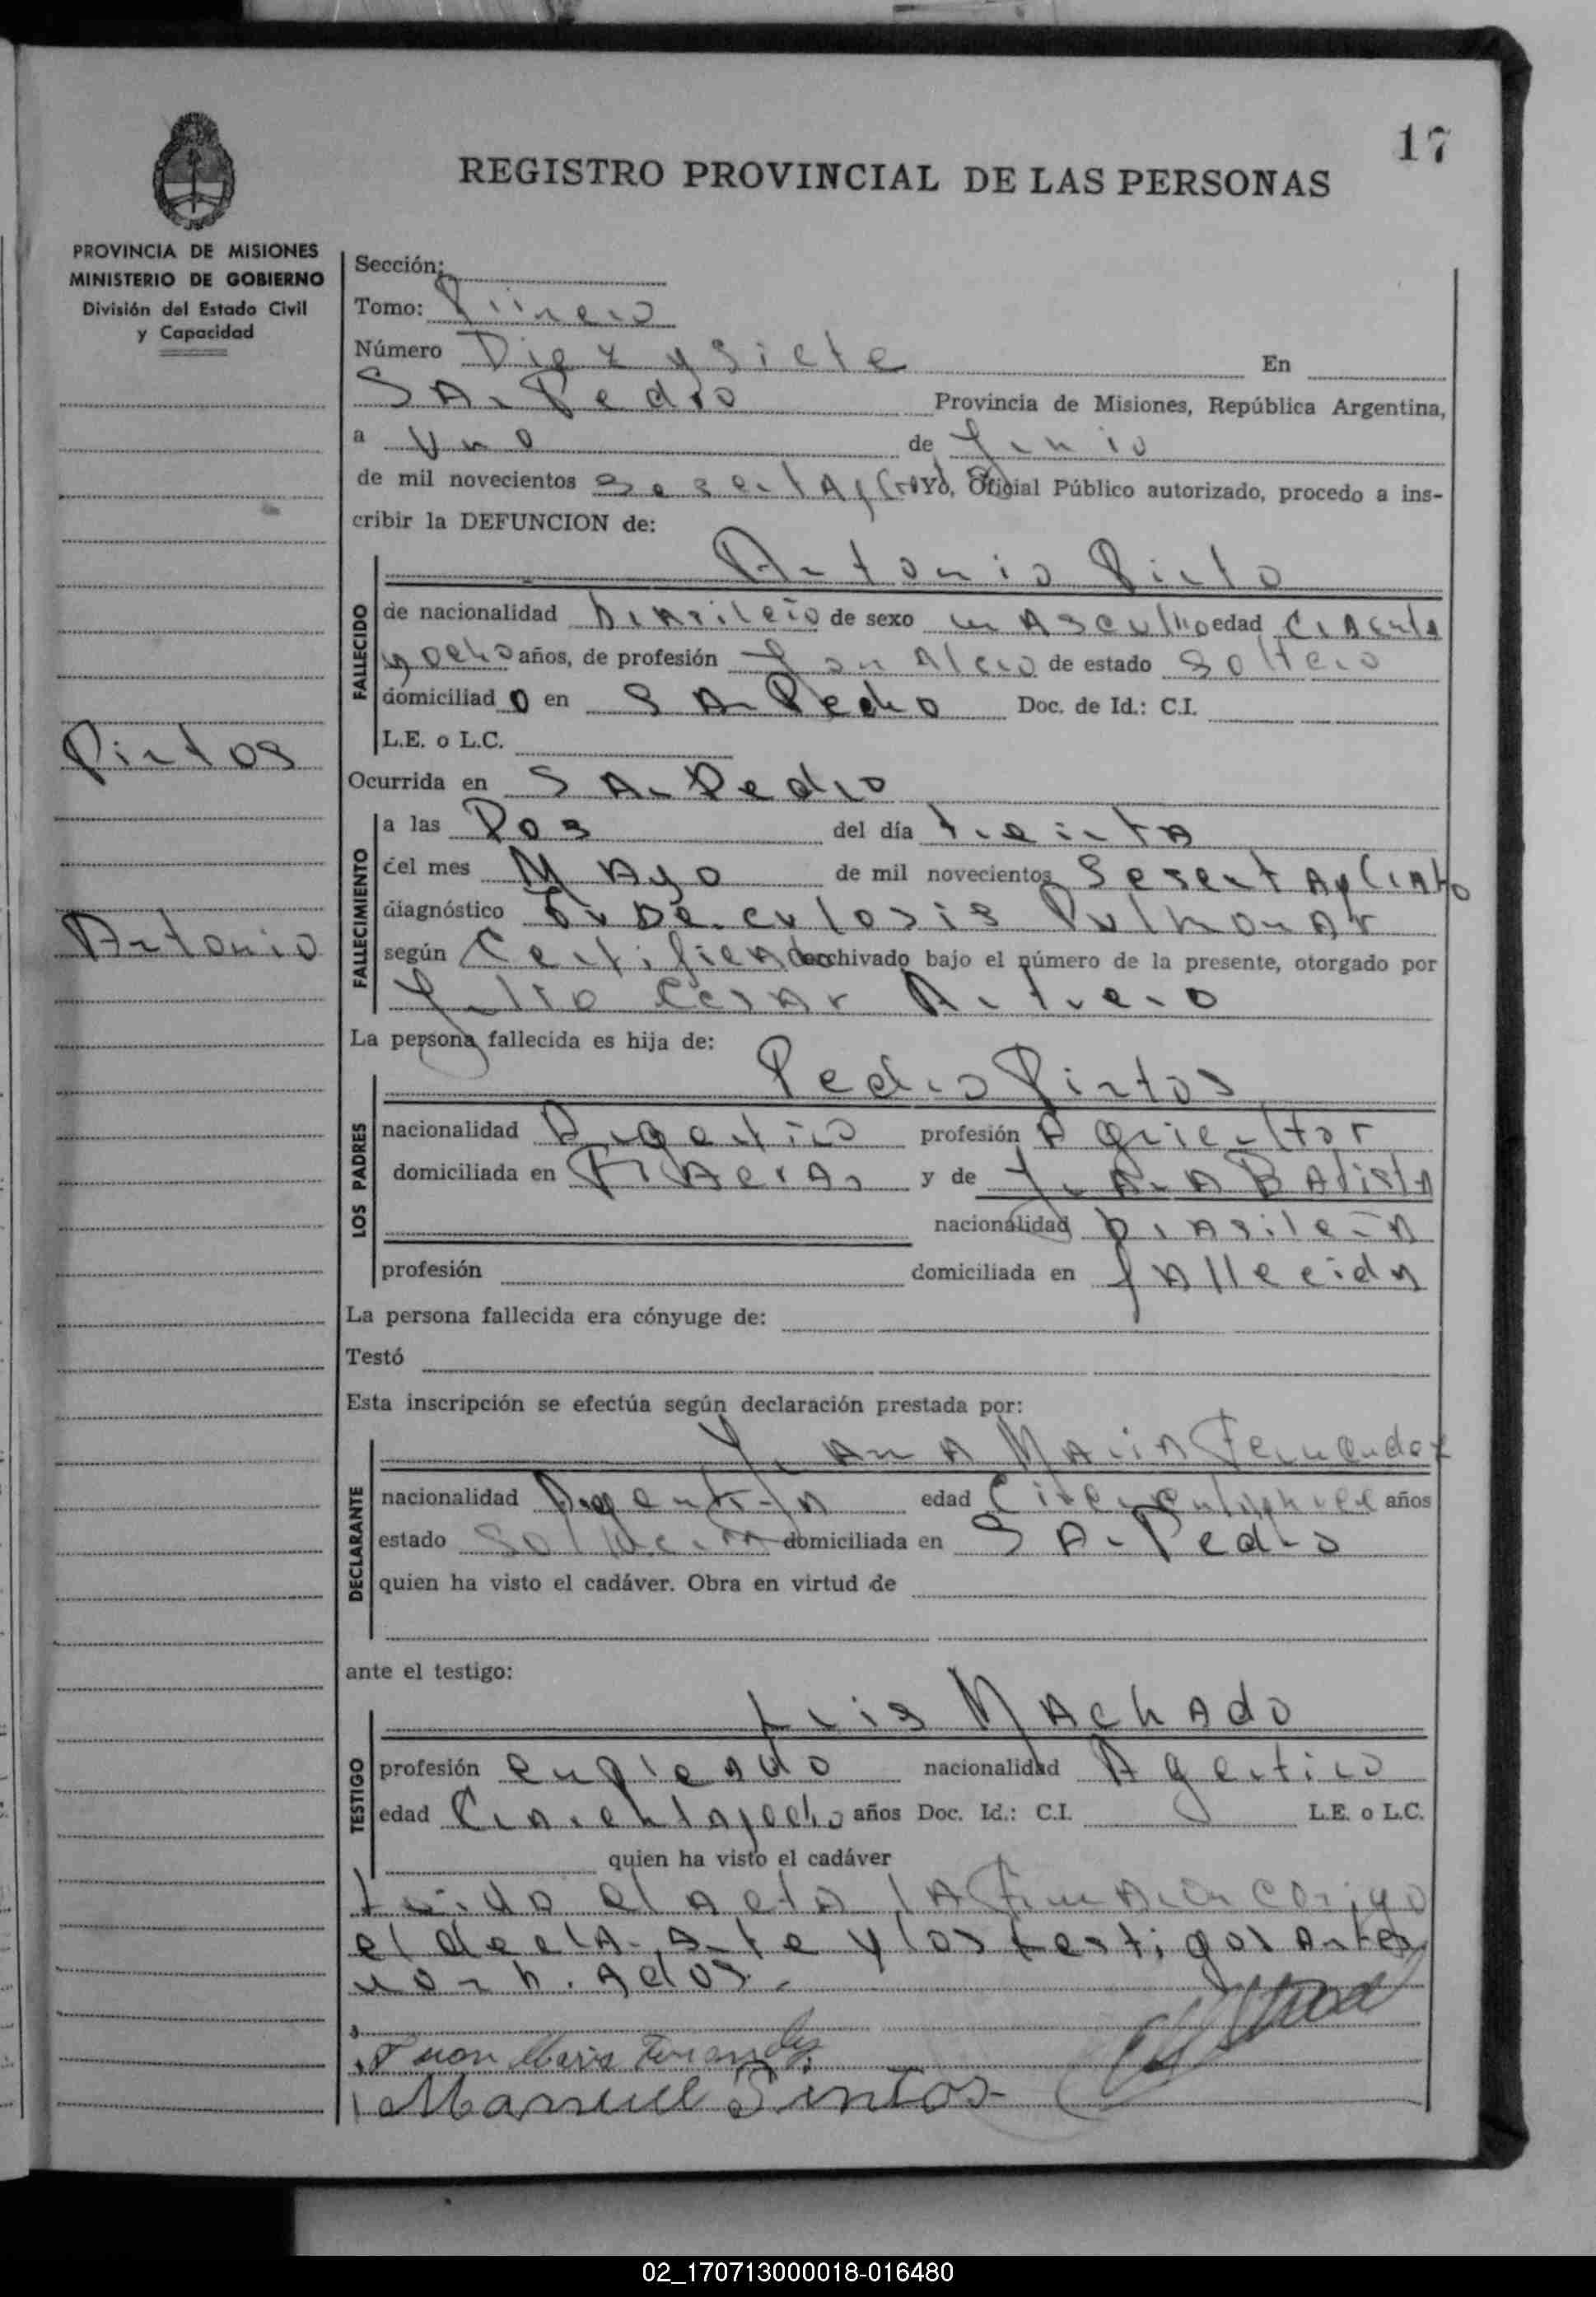 17
REGISTRO PROVINCIAL DE LAS PERSONAS
PROVINCIA DE MISIONES
MINISTERIO DE GOBIERNO
División del Estado Civil
y Capacidad
Sección:
Tomo: Primero
Número Diez y Siete En
San Pedro Provincia de Misiones, República Argentina,
a Uno de Junio
de mil novecientos Yo, Oficial Público autorizado, procedo a ins-
cribir la DEFUNCION de:
Antonio Pinto
FALLECIDO
de nacionalidad brasileño de sexo masculino edad
y ocho años, de profesión Jornalero de estado Soltero
domiciliado en San Pedro Doc. de Id.: C.I.
L.E. o L.C.
Pintos
Antonio
Ocurrida en San Pedro
FALLECIMIENTO
a las Dos del día treinta
del mes Mayo de mil novecientos
diagnóstico Tuberculosis Pulmonar
según Certificado archivado bajo el número de la presente, otorgado por
Julio Cesar
La persona fallecida es hija de:
LOS PADRES
Pedro Pintos
nacionalidad Argentino profesión Agricultor
domiciliada en y de Juana Batista
nacionalidad brasileña
profesión domiciliada en fallecida
La persona fallecida era cónyuge de:
Testó
Esta inscripción se efectúa según declaración prestada por:
DECLARANTE
Juana Maria Fernandez
nacionalidad Argentina edad años
estado domiciliada en San Pedro
quien ha visto el cadáver. Obra en virtud de
ante el testigo:
TESTIGO
Luis Machado
profesión empleado nacionalidad Agentino
edad años Doc. Id.: C.I. L.E. o L.C.
quien ha visto el cadáver
el acta la conmigo
el declarante y los testigos
Manuel Pintos
02_170713000018-016480